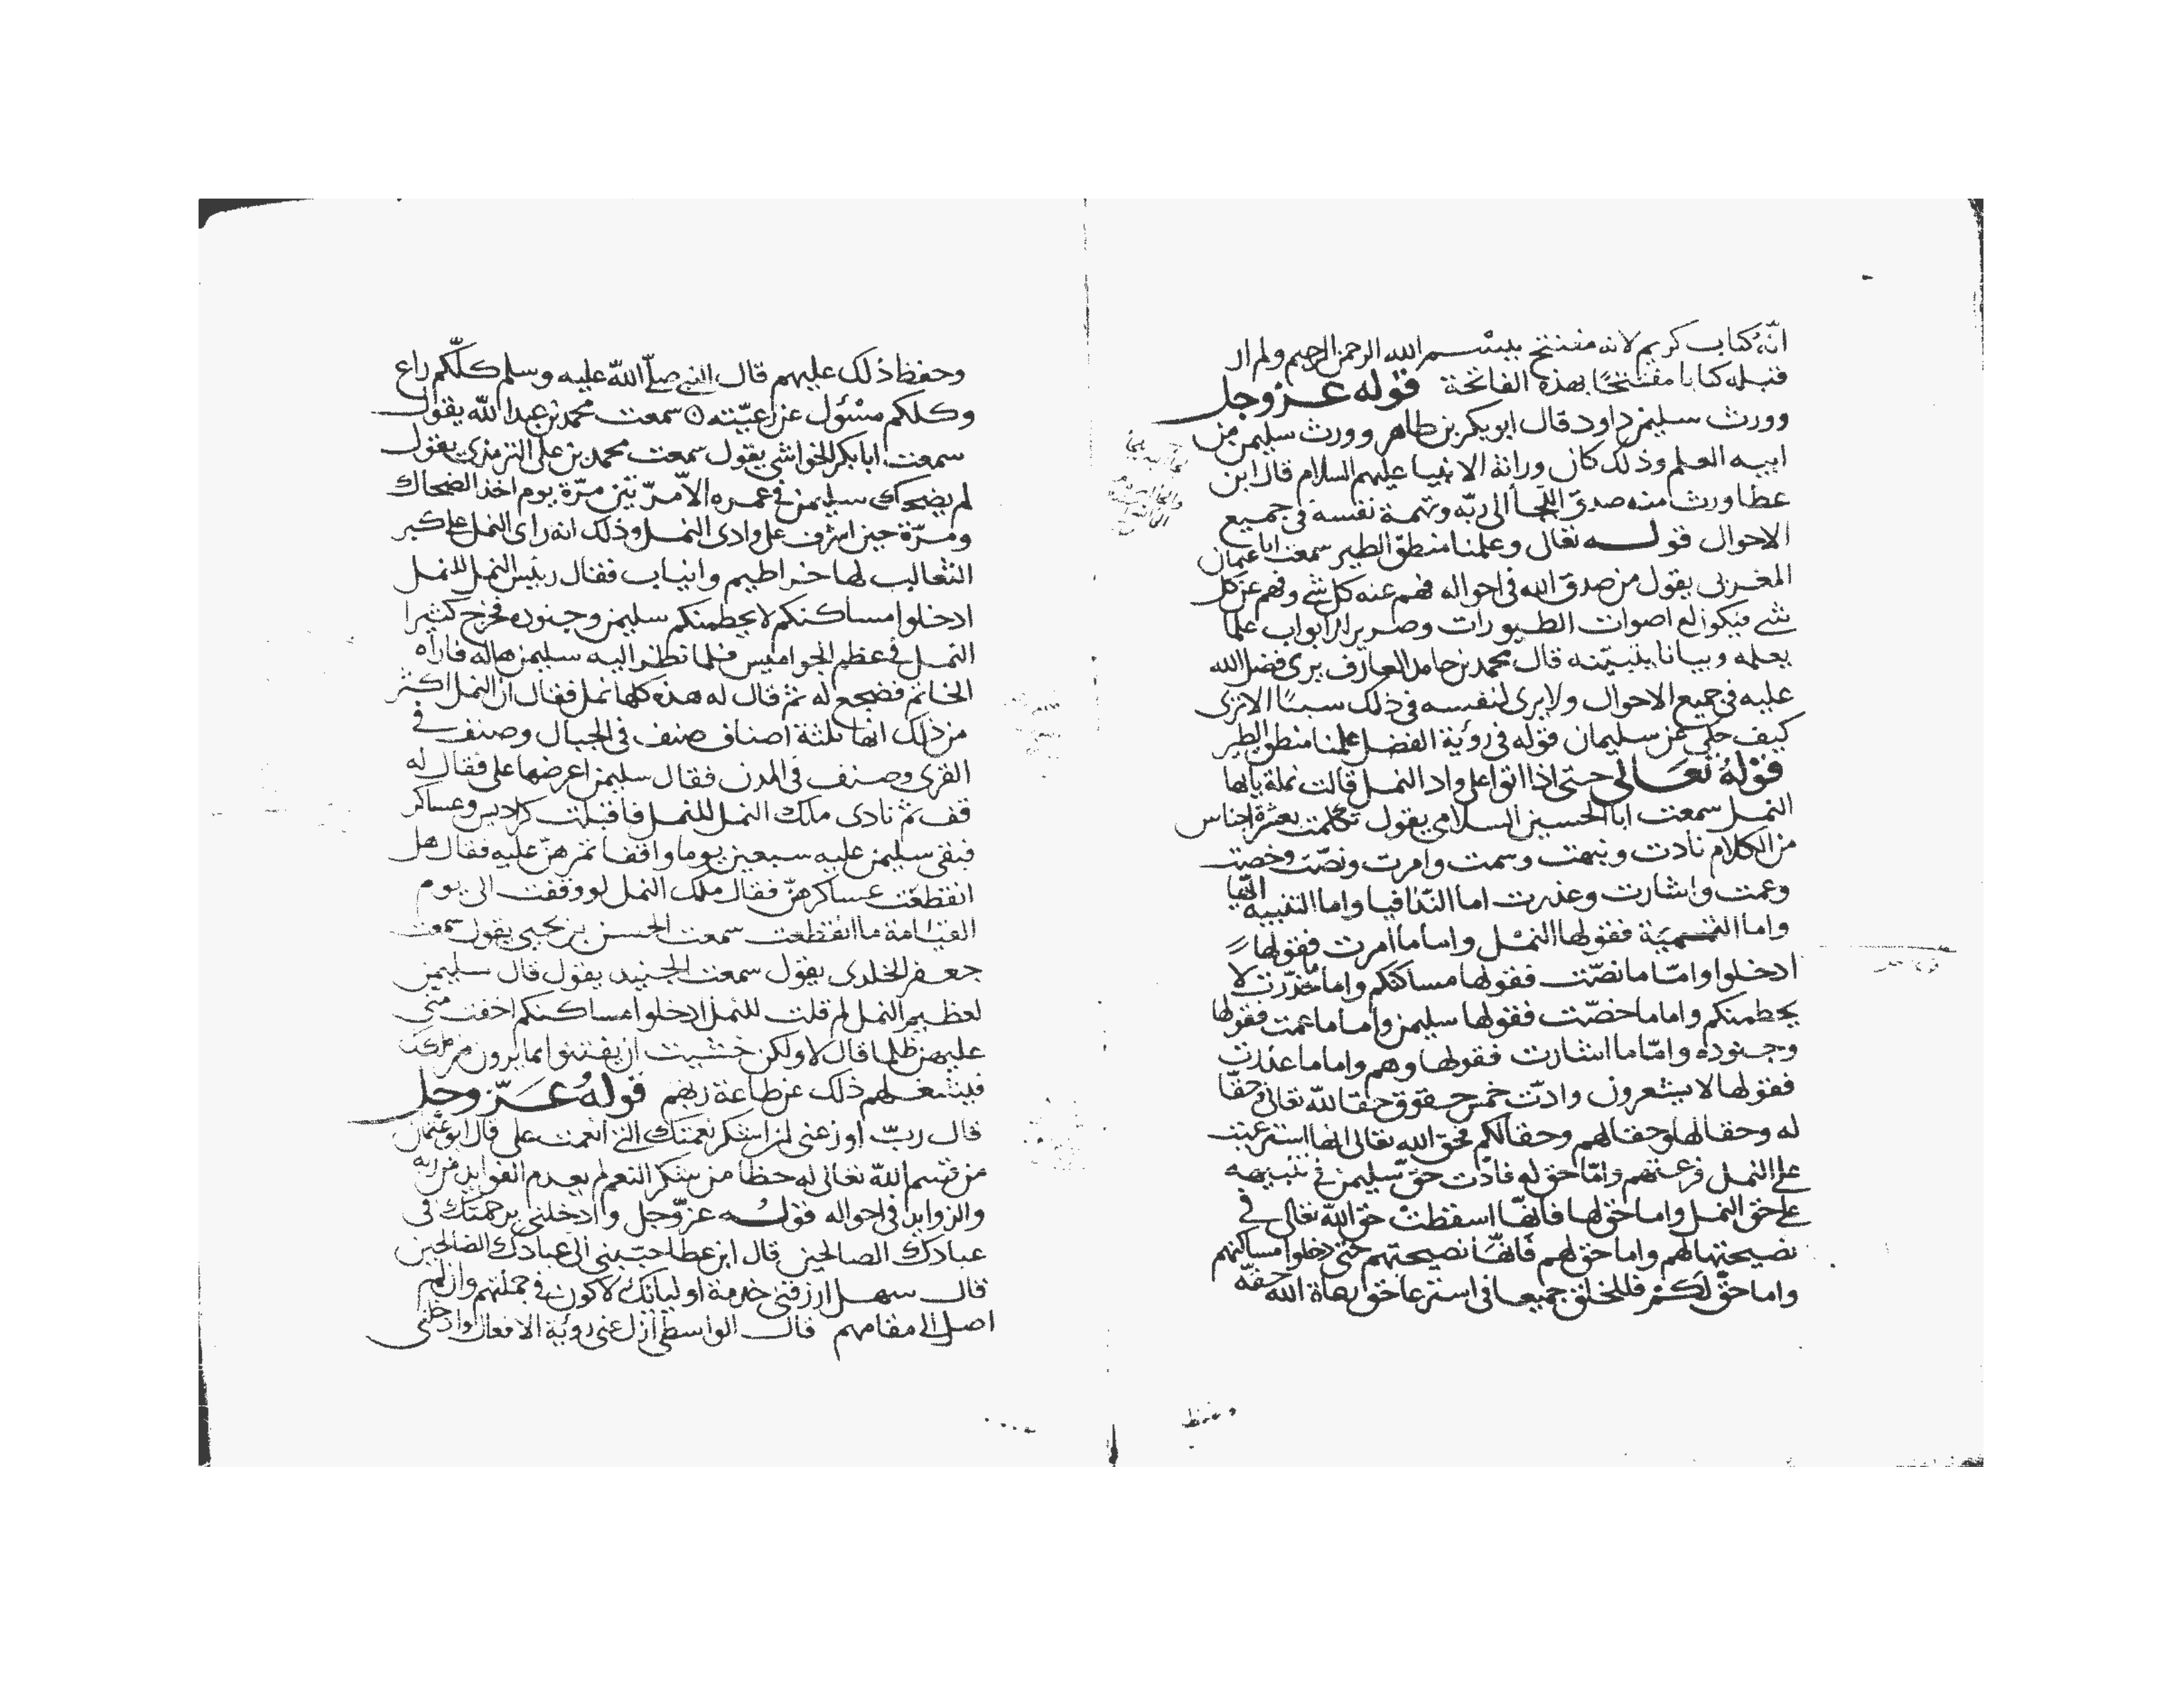 انه كتاب كريم لانه مفتتح ببسم الله الرحمن الرحيم ولم ار
قبله كتابا مفتتحا بهذه الفاتحة قوله عز وجل
وورث سليمن داود قال ابو بكر بن طاهر وورث سليمن من
ابيه العلم وذلك كان وراثة الانبيا عليهم السلام قال ابن
عطا ورث منه صدق اللجأ الى ربه وتهمة نفسه في جميع
الاحوال قوله تعالى وعلمنا منطق الطير سمعت ابا عثمان
المغربي يقول من صدق الله في احواله فهم عنه كل شي وفهم عن كل
شي فيكون له اصوات الطيور ات وصرير الابواب علما
يعلمه وبيانا يتبينه قال محمد بن حامد العارف يرى فضل الله
عليه في جميع الاحوال ولا يرى لنفسه في ذلك سببا الا ترى
كيف حكى عن سليمان قوله في رؤية الفضل علمنا منطق الطير
قوله تعالى حتى اذا اتوا على واد النمل قالت نملة يايها
النمل سمعت ابا الحسين السلامي يقول تكلمت بعشرة اجناس
من الكلام نادت ونبهت وسمت وامرت ونصت وخصت
وعمت واشارت وعذرت اما الندا فيا واما التنبيه ايها
واما التسمية فقولها النمل واما ما امرت فقولها
ادخلوا واما ما نصت فقولها مساكنكم واما ما حذرت لا
يحطمنكم واما ما خصت فقولها سليمن واما ما عمت فقولها
وجنوده واما ما اشارت فقولها وهم واما ما عذرت
فقولها لا يشعرون وادت خمس حقوق حقا لله تعالى وحقا
له وحقا لها وحقا لهم وحقا لكم فحق الله تعالى انها استرعيت
على النمل فرعتهم واما حق له فادت حق سليمن في تنبيهه
على حق النمل واما حق لها فانها اسقطت حق الله تعالى في
نصيحتها لهم واما حق لهم فانها نصيحتهم حتى دخلوا مساكنهم
واما حق لكم فللخلق جميعا في استرعا حق رعاة الله حقه
وحفظ ذلك عليهم قال النبي صلى الله عليه وسلم كلكم راع
وكلكم مسئول عن رعيته سمعت محمد بن عبد الله يقول
سمعت ابا بكر الخواشي يقول سمعت محمد بن على الترمذي يقول
لم يضحك سليمن في عمره الا مرتين مرة يوم اخذ الضحاك
ومرة حين اشرف على وادى النمل وذلك انه راى النمل على كبر
الثعالب لها خراطيم وانياب فقال رئيس النمل للنمل
ادخلوا مساكنكم لا يحطمنكم سليمن وجنوده فخرج كثيرا
النمل في عظم الجواميس فلما نظر اليه سليمن هاله فاراه
الخاتم فخضع له ثم قال له هذه كلها نمل فقال ان النمل اكثر
من ذلك انها ثلثة اصناف صنف في الجبال وصنف في
القرى وصنف في المدن فقال سليمن اعرضها على فقال له
قف ثم نادى ملك النمل للنمل فاقبلت كراديس وعساكر
فبقى سليمن عليه سبعين يوما واقفا تمر هن عليه فقال هل
انقطعت عساكرهن فقال ملك النمل لو وقفت الى يوم
القيامة ما انقطعت سمعت الحسن بن يحيى يقول سمعت
جعفر الخلدى يقول سمعت الجنيد يقول قال سليمن
لعظيم النمل لم قلت للنمل ادخلوا مساكنكم اخفت منى
عليهن ظلما قال لا ولكن خشيت ان يفتتنوا بما يرون من ملكك
فيشغلهم ذلك عن طاعة ربهم قوله عز وجل
قال رب اوزعنى ان اشكر نعمتك التى انعمت على قال ابو عثمان
من قسم الله تعالى له حظا من شكر النعم لم يعدم الفوايد من ربه
والزوايد في احواله قوله عز وجل وادخلنى برحمتك في
عبادك الصالحين قال ابن عطا حببنى الى عبادك الصالحين
قال سهل ارزقنى خدمة اوليائك لاكون في جملتهم وان لم
اصل الى مقامهم قال الواسطى ازل عنى رؤية الافعال وادخلنى